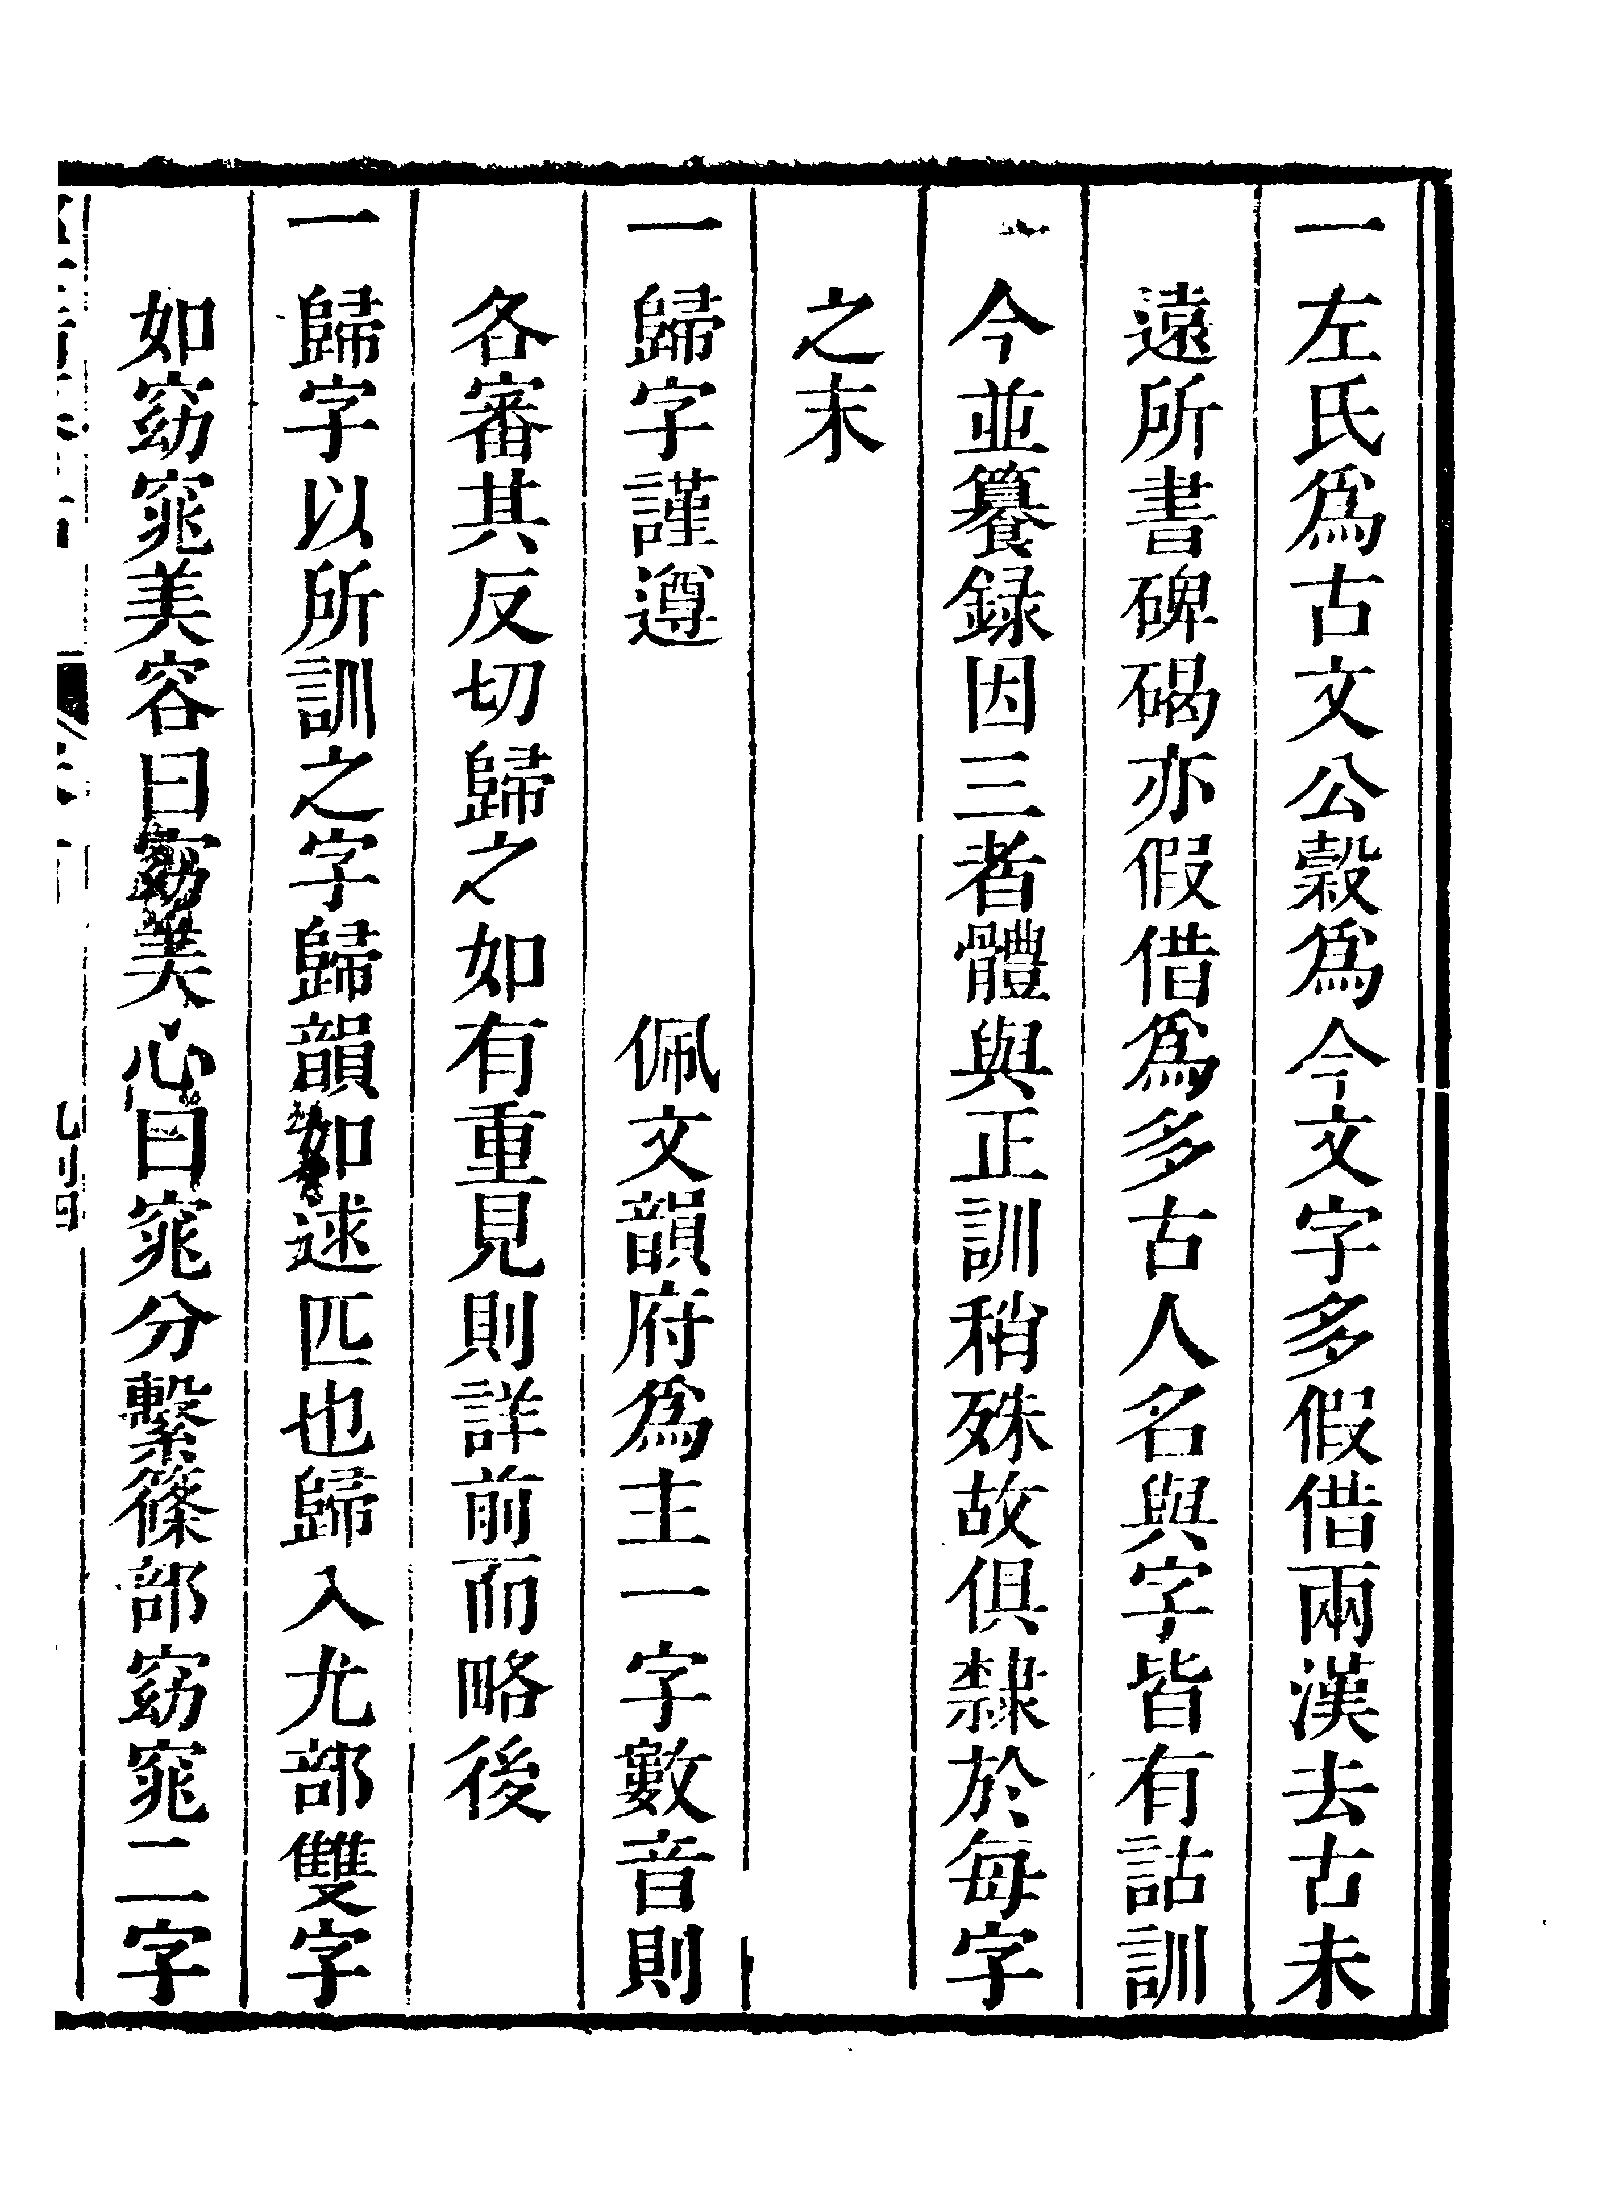 一左氏爲古文公糓爲今文字多假借兩漢去古未
遠所書碑碣亦假借爲多古人名與字皆有詁訓
今並纂録因三者體與正訓稍殊故俱隸於每字
之末
一歸字謹遵　　　佩文韻府爲主一字數音則
各審其反切歸之如有重見則詳前而略後
一歸字以所訓之字歸韻如逑匹也歸入尤部雙字
如窈窕美容曰窈美心曰窕分繫篠部窈窕二字